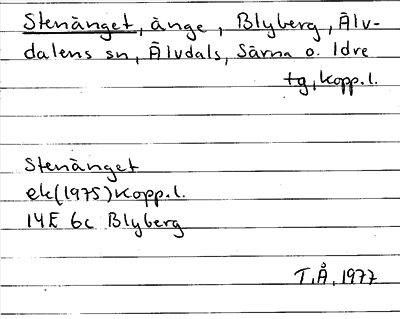 Stenänget, änge, Blyberg, Älv-
dalens sn, Älvdals, Särna o. Idre
tg, Kopp.l.
Stenänget
ek(1975)Kopp.l.
14E 6c Blyberg
T.Å, 1977